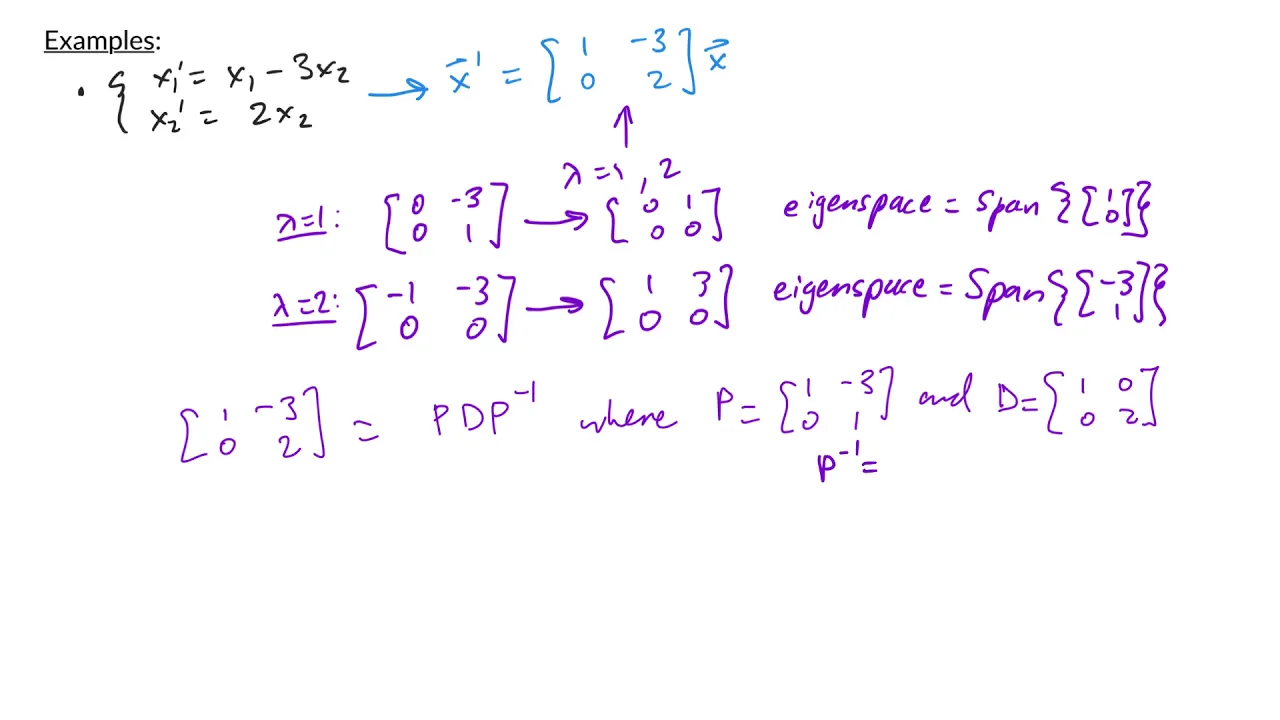 Examples:
• { x₁' = x₁ - 3x₂ → x⃗' = [1 -3; 0 2] x⃗
x₂' = 2x₂
↑
λ=1, 2
λ=1: [0 -3; 0 1] → [0 1; 0 0] eigenspace = Span {[1; 0]}
λ=2: [-1 -3; 0 0] → [1 3; 0 0] eigenspace = Span {[-3; 1]}
[1 -3; 0 2] = PDP⁻¹ where P = [1 -3; 0 1] and D = [1 0; 0 2]
P⁻¹ =